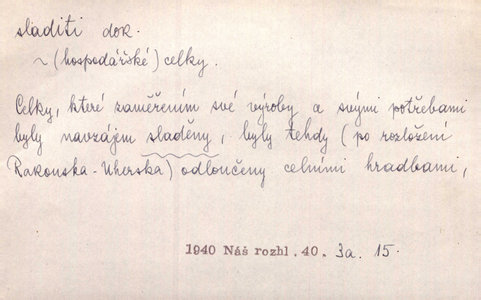 sladiti dok.
~ (hospodářské) celky.
Celky, které zaměřením své výroby a svými potřebami
byly navzájem sladěny, byly tehdy (po rozložení
Rakouska-Uherska) odloučeny celními hradbami,
1940 Náš rozhl. 40. 3a. 15.